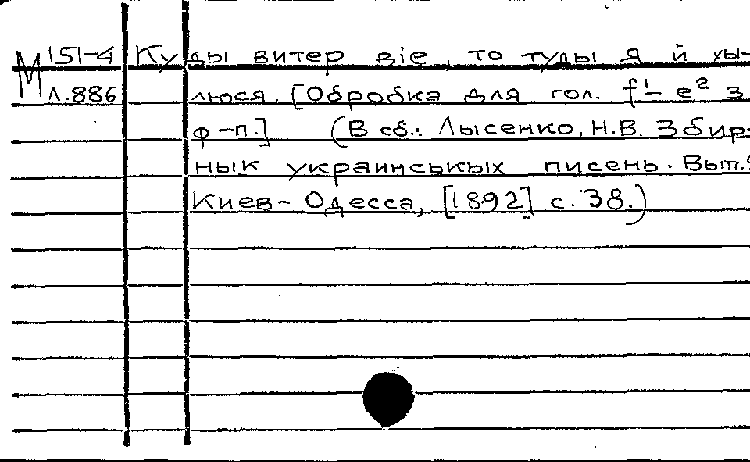 М 151-4 Куды витер віе, то туды я й хы-
Л.886 люся. [Обробка для гол. f¹- e² з
ф-п.] (В сб.: Лысенко, Н.В. Збир-
нык украинськых писень. Вып.
Киев-Одесса, [1892] с. 38.)